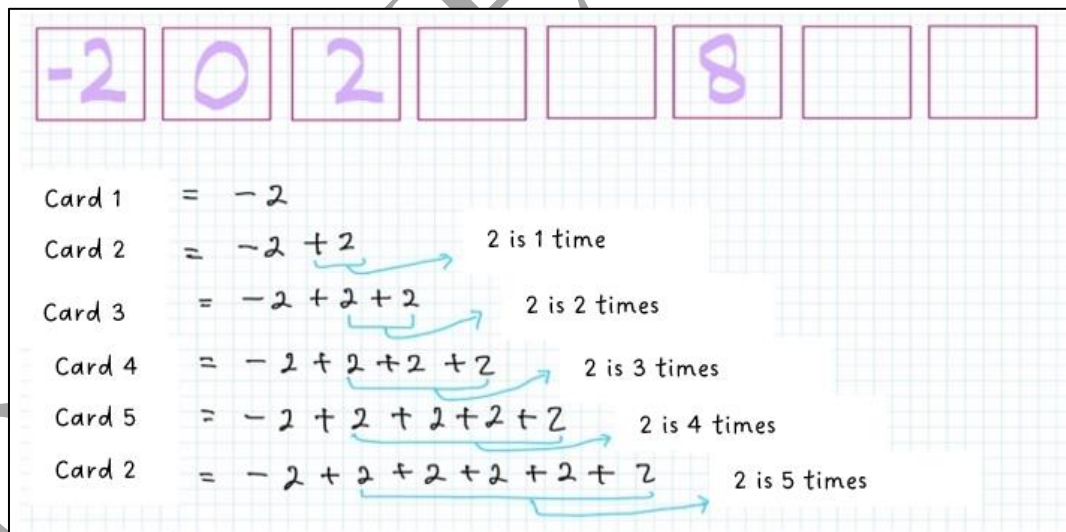 -2 0 2 8
Card 1 = - 2
Card 2 = -2 + 2 2 is 1 time
Card 3 = -2 + 2 + 2 2 is 2 times
Card 4 = - 2 + 2 + 2 + 2 2 is 3 times
Card 5 = - 2 + 2 + 2 + 2 + 2 2 is 4 times
Card 2 = - 2 + 2 + 2 + 2 + 2 + 2 2 is 5 times